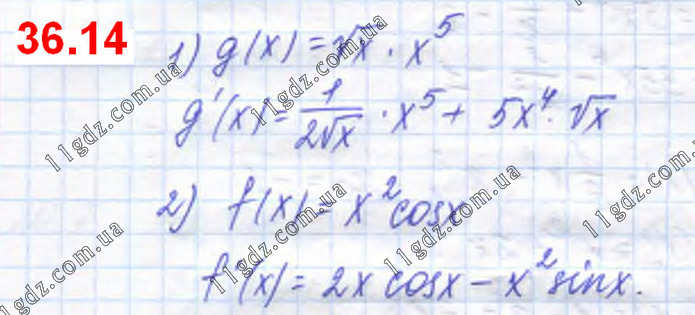 36.14
1) g(x) = √x · x⁵
g'(x) = 1/(2√x) · x⁵ + 5x⁴ · √x
2) f(x) = x² cosx
f'(x) = 2x cosx − x² sinx.
11gdz.com.ua
11gdz.com.ua
11gdz.com.ua
11gdz.com.ua
11gdz.com.ua
11gdz.com.ua
11gdz.com.ua